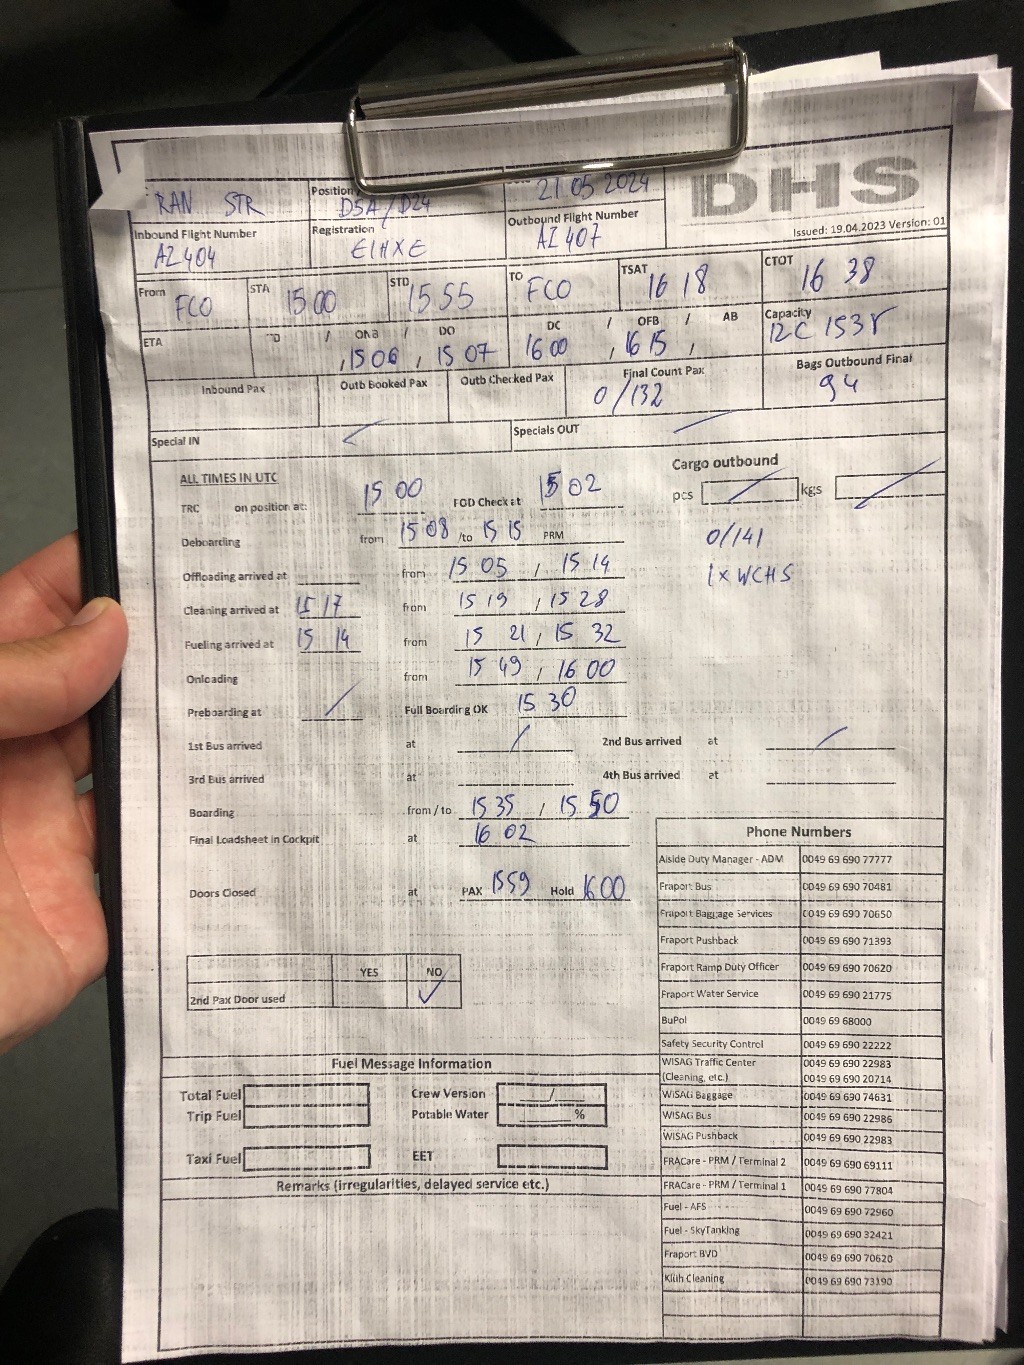 RAN STR Position D5A/D24 21 05 2024 DHS
Inbound Flight Number AZ404 Registration EIHXE Outbound Flight Number AZ 407 Issued: 19.04.2023 Version: 01
From FCO STA 15 00 STD 15 55 TO FCO TSAT 16 18 CTOT 16 38
ETA / ONB / DO DC / OFB / AB Capacity
, 15 06 , 15 07 16 00 , 16 15 , 12C 153Y
Inbound Pax Outb Booked Pax Outb Checked Pax Final Count Pax 0/132 Bags Outbound Final 94
Special IN Specials OUT
ALL TIMES IN UTC Cargo outbound
TRC on position at: 15 00 FOD Check at 15 02 pcs kgs
Deboarding from 15 08 /to 15 15 PRM 0/141
Offloading arrived at from 15 05 , 15 14 1x WCHS
Cleaning arrived at 15 17 from 15 19 , 15 28
Fueling arrived at 15 14 from 15 21 , 15 32
Onloading from 15 49 , 16 00
Preboarding at / Full Boarding OK 15 30
1st Bus arrived at / 2nd Bus arrived at /
3rd Bus arrived at 4th Bus arrived at
Boarding from / to 15 35 / 15 50
Final Loadsheet in Cockpit at 16 02
Doors Closed at PAX 1559 Hold 1600
YES NO
2nd Pax Door used ✓
Fuel Message Information
Total Fuel Crew Version /
Trip Fuel Potable Water %
Taxi Fuel EET
Remarks (irregularities, delayed service etc.)
Phone Numbers
Aiside Duty Manager - ADM 0049 69 690 77777
Fraport Bus 0049 69 690 70481
Fraport Baggage Services 0049 69 690 70650
Fraport Pushback 0049 69 690 71393
Fraport Ramp Duty Officer 0049 69 690 70620
Fraport Water Service 0049 69 690 21775
BuPol 0049 69 68000
Safety Security Control 0049 69 690 22222
WISAG Traffic Center 0049 69 690 22983
(Cleaning, etc.) 0049 69 690 20714
WISAG Baggage 0049 69 690 74631
WISAG Bus 0049 69 690 22986
WISAG Pushback 0049 69 690 22983
FRACare - PRM / Terminal 2 0049 69 690 69111
FRACare - PRM / Terminal 1 0049 69 690 77804
Fuel - AFS 0049 69 690 72960
Fuel - SkyTanking 0049 69 690 32421
Fraport BVD 0049 69 690 70620
Klüh Cleaning 0049 69 690 73190